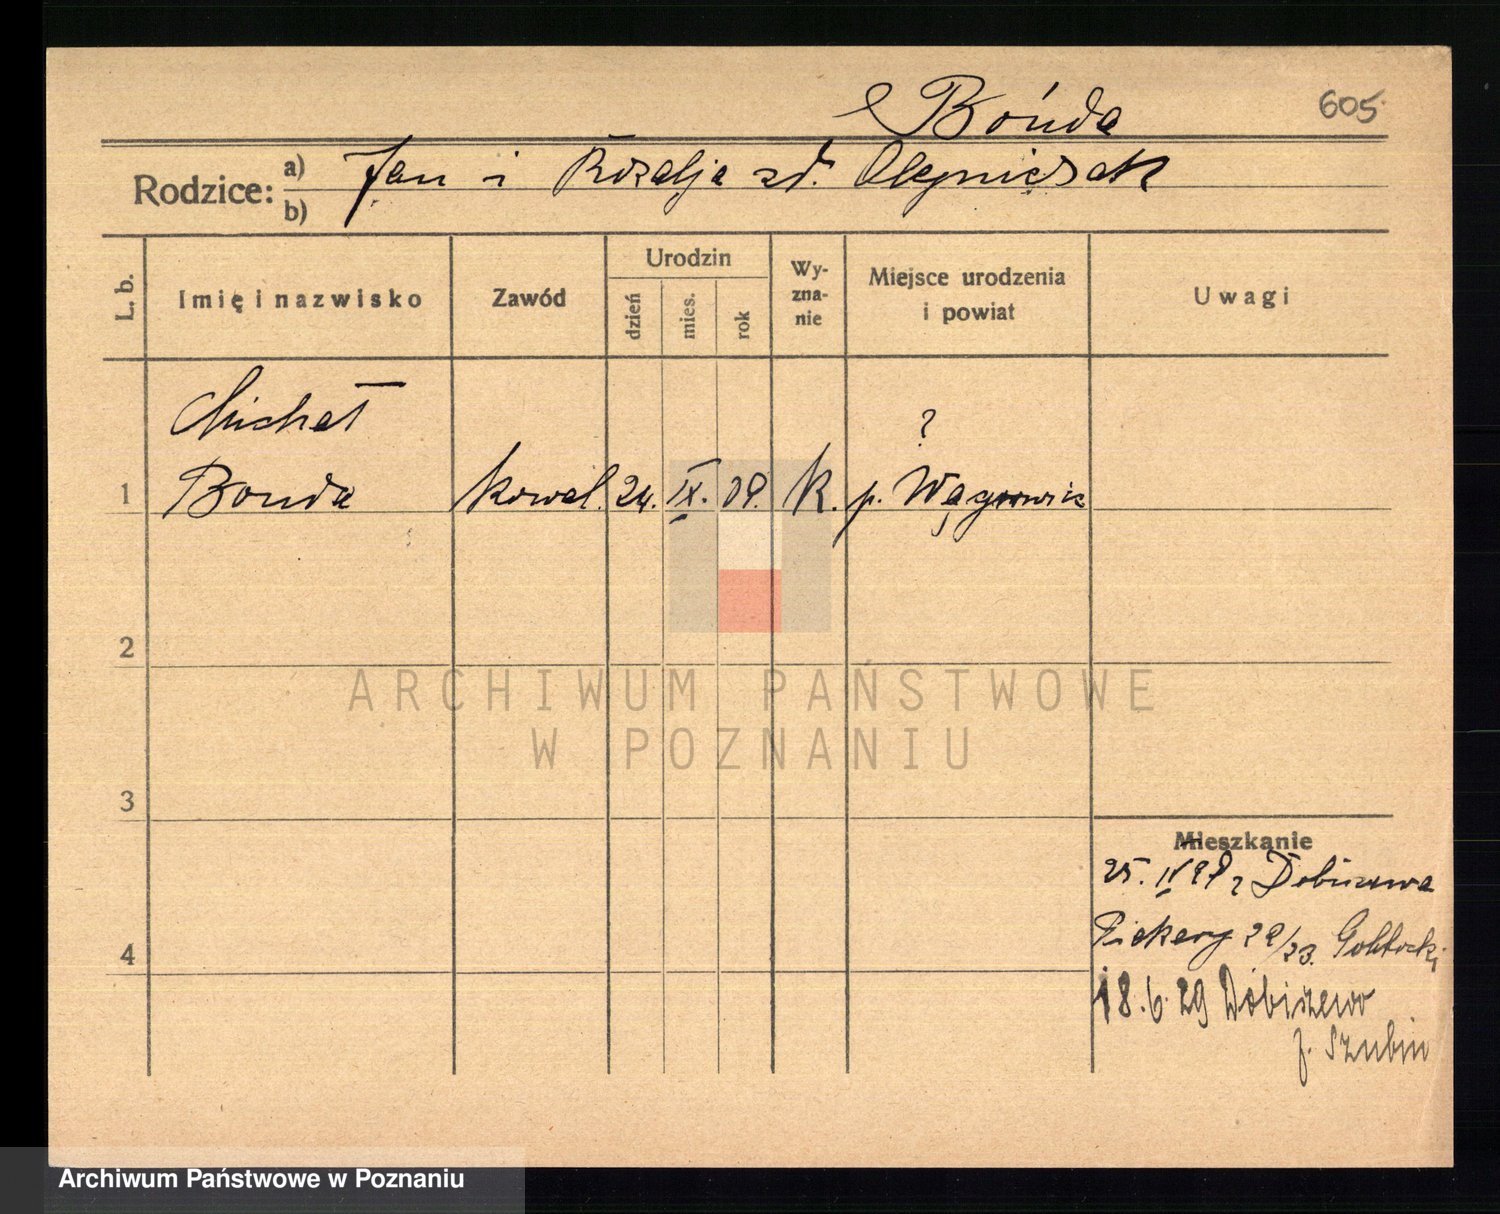 Bońda
605
Rodzice: a) Jan i Rozalja zd. Olejniczak
b)
L. b.
Imię i nazwisko
Zawód
Urodzin
dzień
mies.
rok
Wy-
zna-
nie
Miejsce urodzenia
i powiat
Uwagi
Michał ?
1 Bonda kowal. 24. IX. 09. K. p. Wągrowiec
2
3
4
ARCHIWUM PAŃSTWOWE
W POZNANIU
Mieszkanie
25. IV 29 z Dobiszewa
Piekary 22/23.
18.6.29 Dobiszewo
p. Szubin
Archiwum Państwowe w Poznaniu